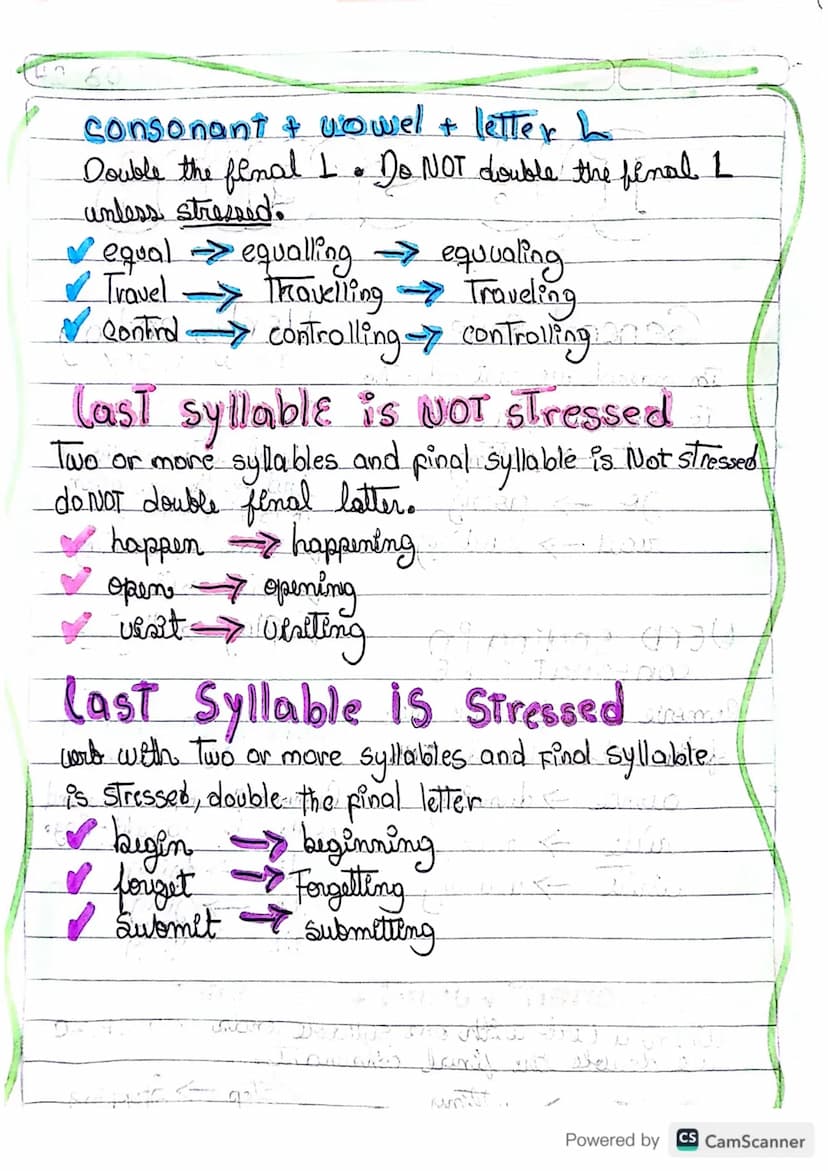 consonant + vowel + letter L
Double the final L. Do NOT double the final L
unless stressed.
✓ equal → equalling → equualing
✓ Travel → Travelling → Traveling
✓ control → controlling → controlling
Last syllable is NOT stressed
Two or more syllables and final syllable is Not stressed
do NOT double final latter.
✓ happen → happening
✓ open → opening
✓ visit → visiting
Last Syllable is Stressed
verb with Two or more syllables and Final syllable
is stressed, double the final letter
✓ begin → beginning
✓ forget → Forgetting
✓ Submit → submitting
Powered by CS CamScanner